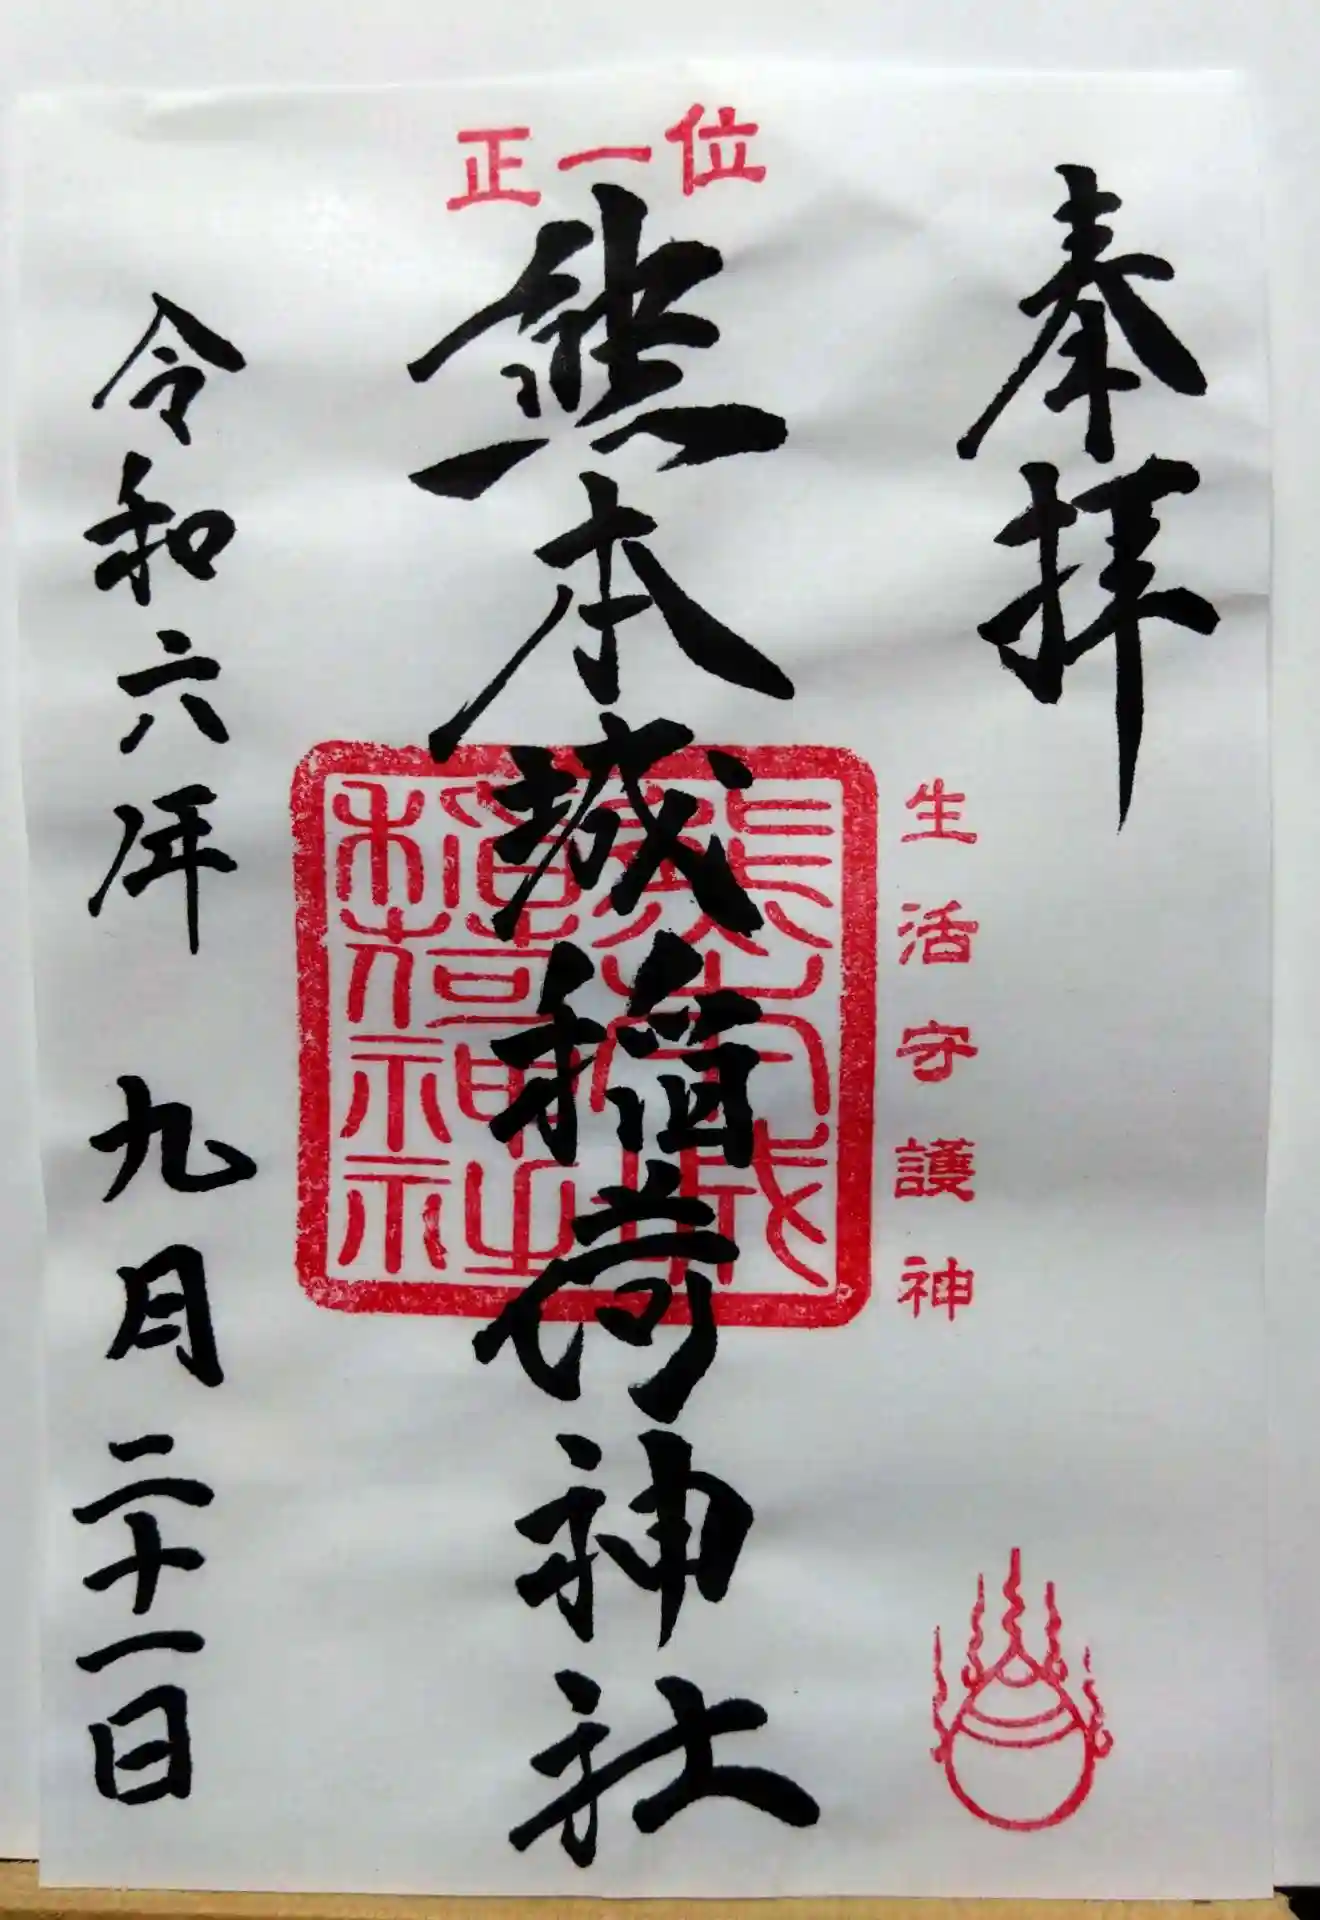 奉拝
生活守護神
正一位
熊本城稲荷神社
熊本城
稲荷神社
令和六年 九月二十一日